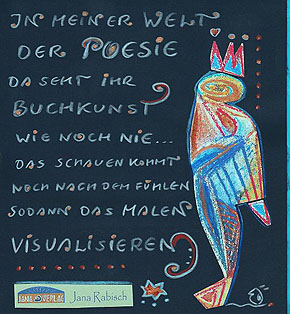 IN MEINER WELT
DER POESIE
DA SEHT IHR
BUCHKUNST
WIE NOCH NIE...
DAS SCHAUEN KOMMT
NOCH NACH DEM FÜHLEN
SODANN DAS MALEN
VISUALISIEREN
JANA VERLAG
Jana Rabisch